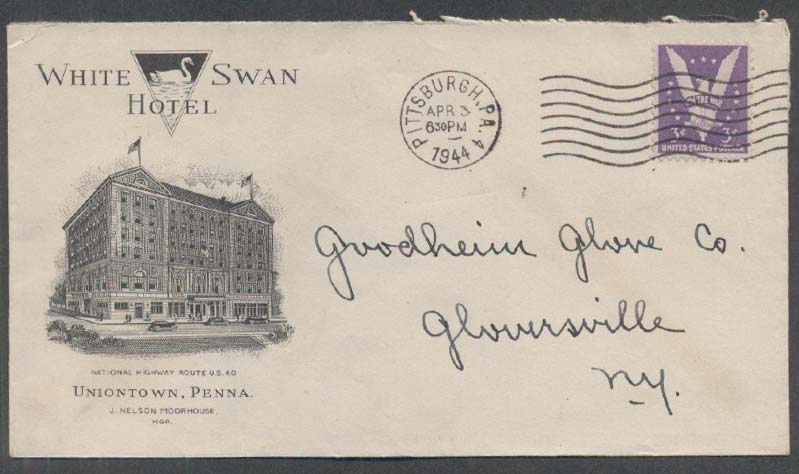 WHITE SWAN
HOTEL
NATIONAL HIGHWAY ROUTE U.S. 40
UNIONTOWN, PENNA.
J. NELSON MOORHOUSE,
MGR.
PITTSBURGH, PA. 4
APR 3
630PM
1944
WIN THE WAR
3¢ 3¢
UNITED STATES POSTAGE
Goodheim Glove Co.
Gloversville
N.Y.